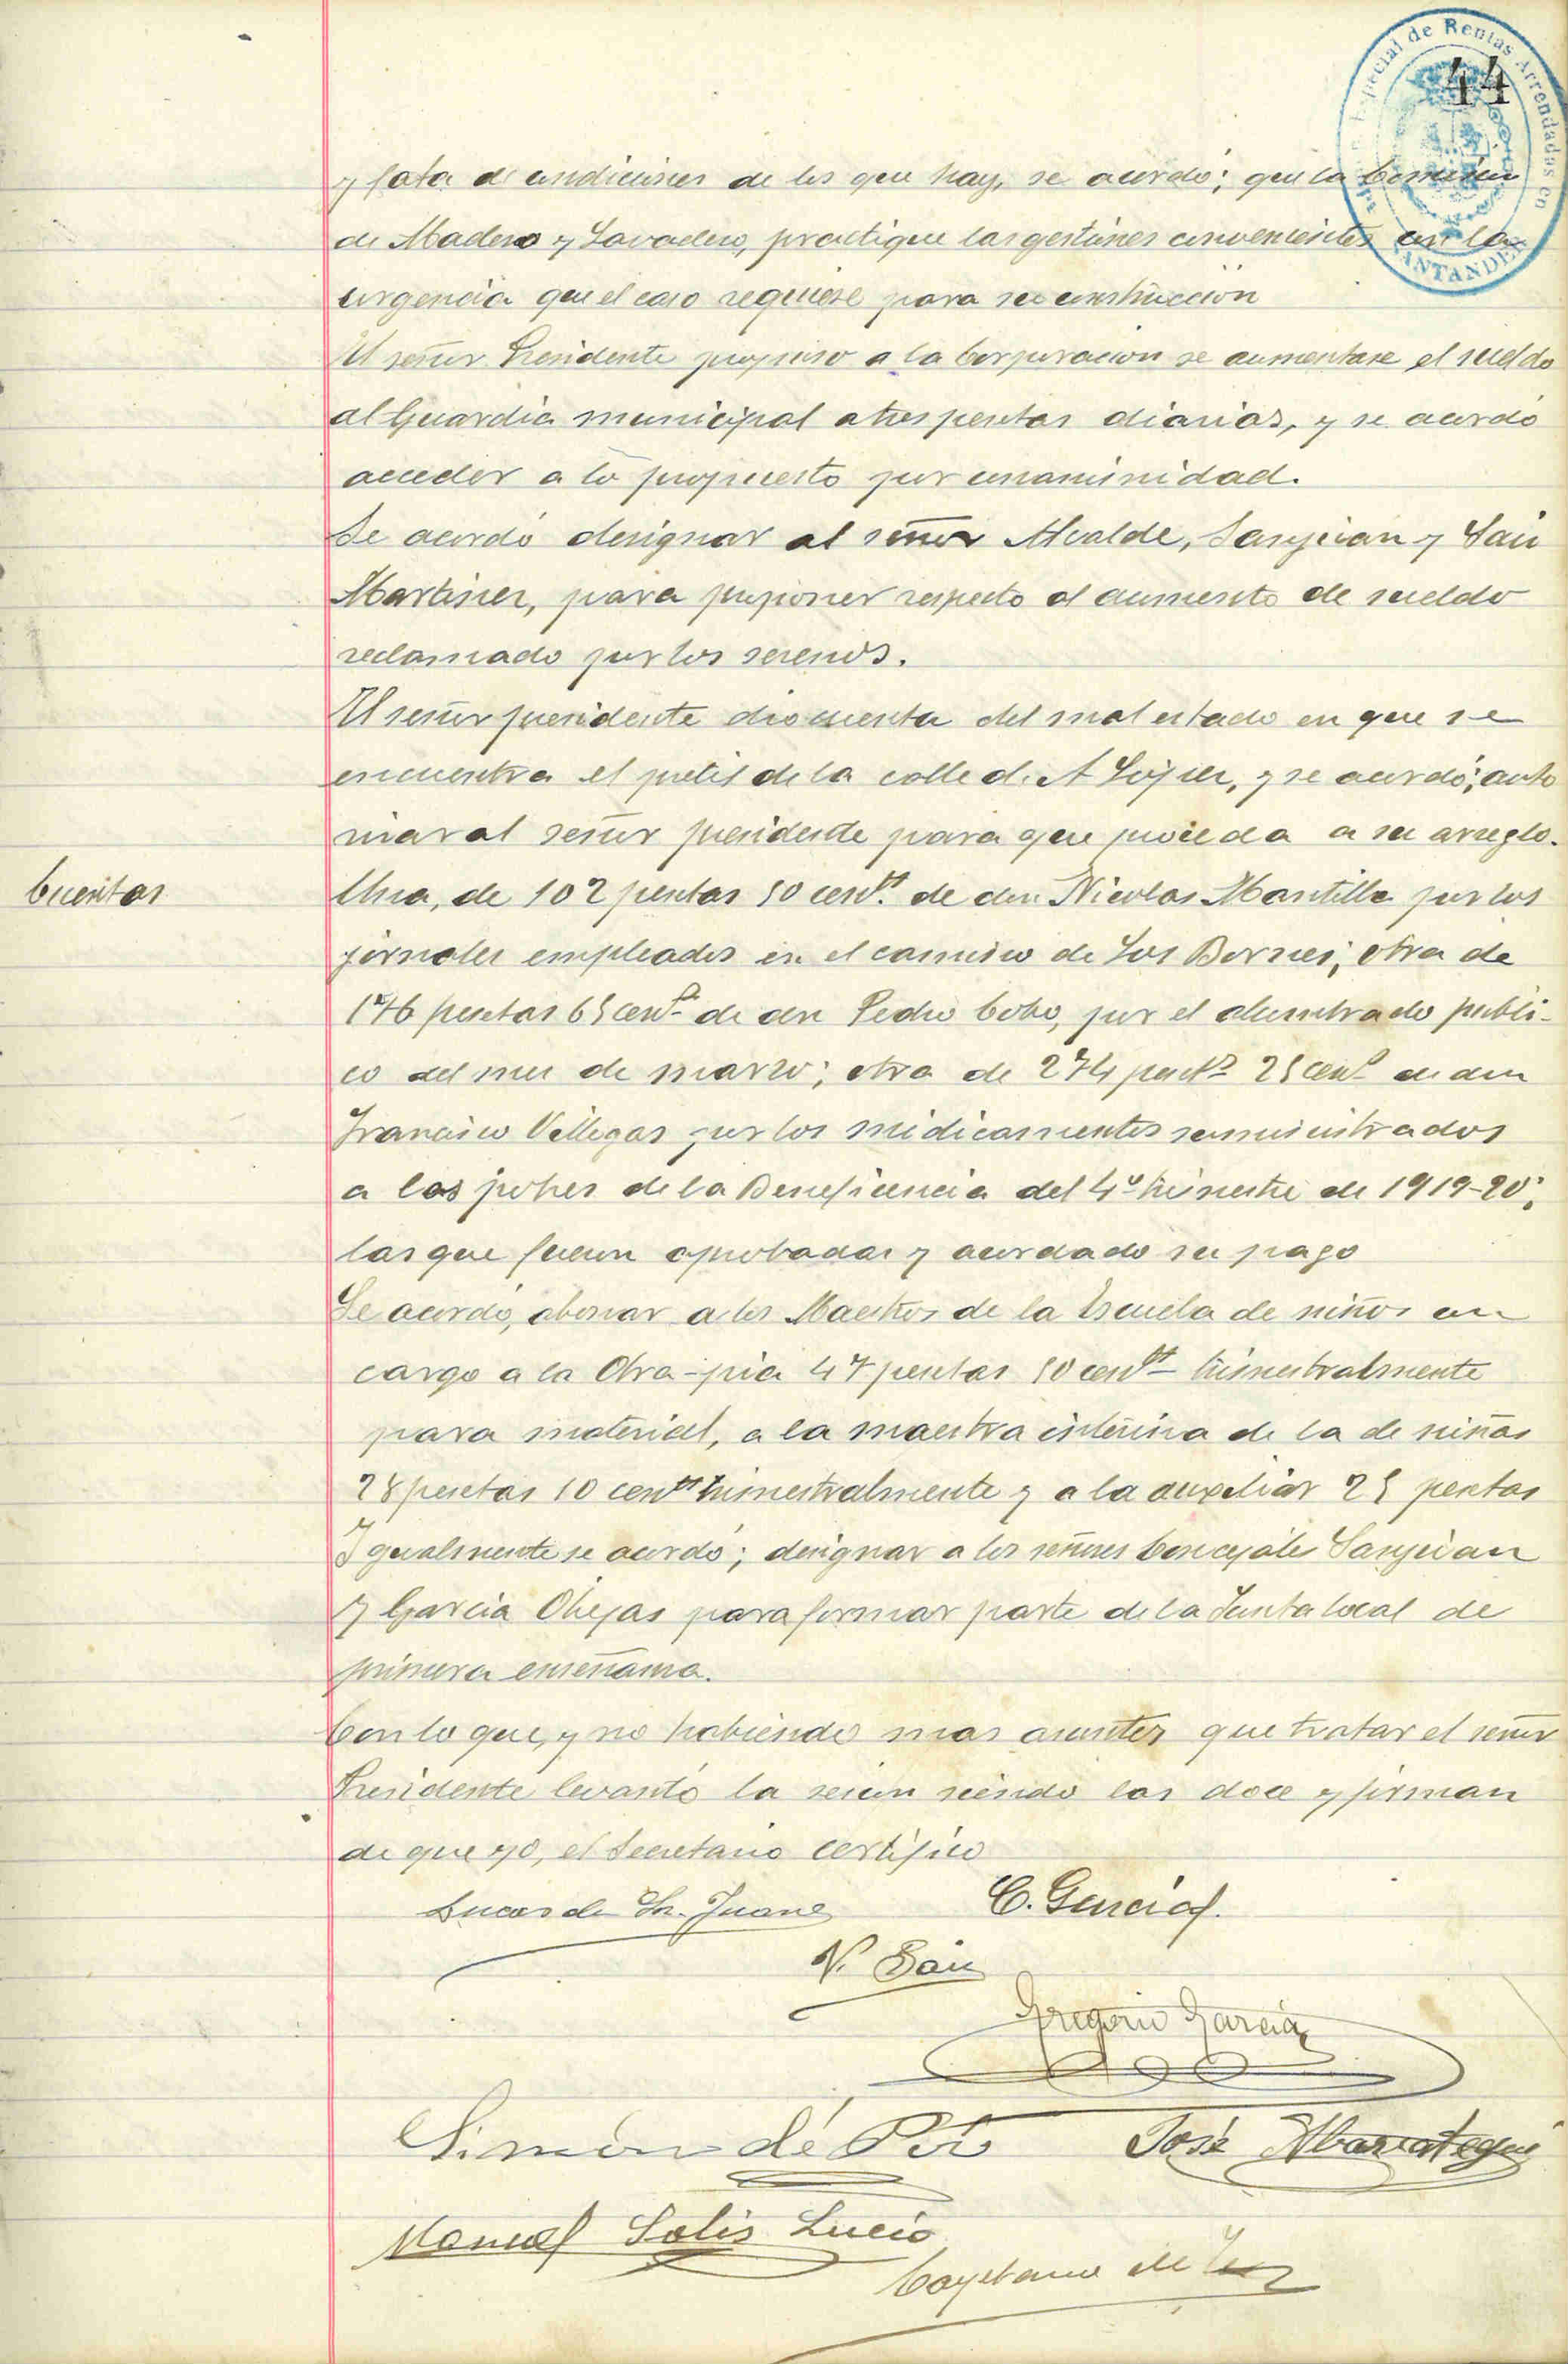 44
Especial de Rentas Arrendadas
SANTANDER
y fata de condiciones de los que hay, se acordó; que la Comisión
de Madero y Lavadero, practique las gestiones convenientes con la
urgencia que el caso requiere para su construcción
El señor Presidente propuso a la Corporacion se aumentase el sueldo
al Guardia municipal a tres pesetas diarias, y se acordó
acceder a lo propuesto por unanimidad.
Se acordó designar al señor Alcalde, Sanjuan y Saiz
Martinez, para proponer respecto al aumento de sueldo
reclamado por los serenos.
El señor presidente dio cuenta del mal estado en que se
encuentra el pretil de la calle de A Lopez, y se acordó; auto
rizar al señor presidente para que proceda a su arreglo.
Cuentas
Una, de 102 pesetas 50 centˢ. de don Nicolas Mantilla por los
jornales empleados en el camino de Los Bornes; otra de
176 pesetas 65 centˢ de don Pedro Cobo, por el alumbrado publi-
co del mes de marzo; otra de 274 pestˢ 25 centˢ de don
Francisco Villegas por los medicamentos suministrados
a los pobres de la Beneficencia del 4º trimestre de 1919-20;
las que fueron aprobadas y acordado su pago
Se acordó, abonar a los Maestros de la Escuela de niños con
cargo a la Obra-pia 47 pesetas 50 centˢ trimestralmente
para material, a la maestra interina de la de niñas
28 pesetas 10 centˢ trimestralmente y a la auxiliar 25 pesetas
Igualmente se acordó; designar a los señores Concejales Sanjuan
y Garcia Obejas para formar parte de la Junta local de
primera enseñanza.
Con lo que, y no habiendo mas asuntos que tratar el señor
Presidente levantó la sesion siendo las doce y firman
de que yo, el Secretario certifico
Lucas de Sn. Juane
N. Saiz
Gregorio Garcia
Simón de
José Abarrategui
Manuel Solis Lucio
Cayetano de